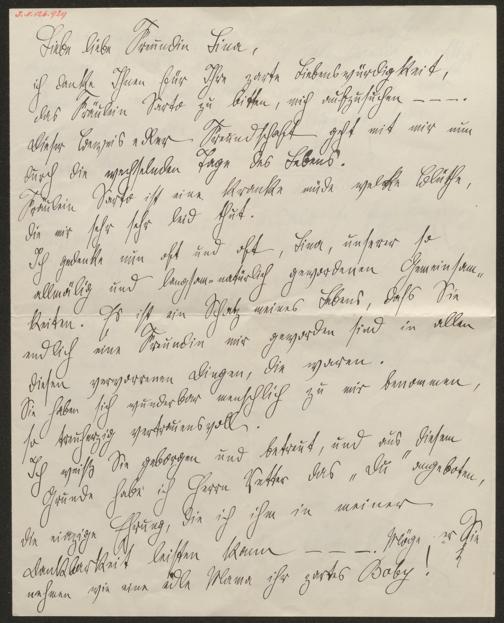 J.N. 126.929
Liebe liebe Freundin Lina,
ich danke Ihnen für Ihre zarte Liebenswürdigkeit,
das Fräulein Sarto zu bitten, mich aufzusuchen – – – .
Dieser Beweis edler Freundschaft geht mit mir nun
durch die wechselnden Tage des Lebens.
Fräulein Sarto ist eine kranke müde welke Blüthe,
die mir sehr sehr leid thut.
Ich gedenke nun oft und oft, Lina, unserer so
allmälig und langsam-natürlich gewordenen Gemeinsam-
keiten. Es ist ein Schatz meines Lebens, dass Sie
endlich eine Freundin mir geworden sind in allen
diesen verworrenen Dingen, die waren.
Sie haben sich wunderbar menschlich zu mir benommen,
so treuherzig vertrauensvoll.
Ich weiß Sie geborgen und betreut, und aus diesem
Grunde habe ich Herrn Vetter das „Du" angeboten,
die einzige Ehrung, die ich ihm in meiner
Dankbarkeit leisten kann – – – . Möge er Sie
nehmen wie eine edle Mama ihr zartes Baby!